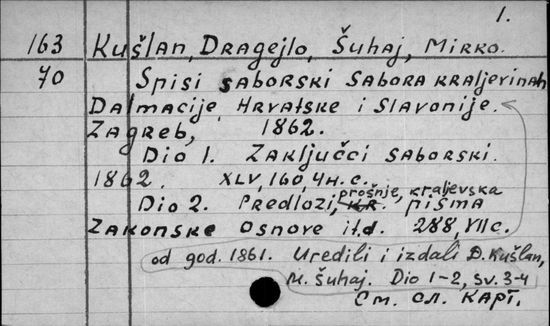 1.
163 Kušlan, Dragejlo, Šuhaj, Mirko.
70 Spisi saborski sabora kraljevinah
Dalmacije, Hrvatske i Slavonije.
Zagreb, 1862.
Dio 1. Zaključci saborski.
1862. XLV, 160, 4н. с.
Dio 2. Predlozi, prošnje, kraljevska pisma
zakonske osnove itd. 288, VII c.
od god. 1861. Uredili i izdali D. Kušlan,
M. Šuhaj. Dio 1-2, sv. 3-4
См. сл. карт.